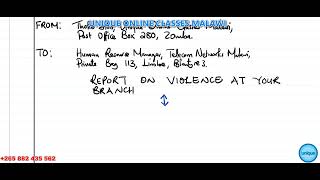 UNIQUE ONLINE CLASSES MALAWI
FROM:
Post Office Box 280, Zomba.
TO: Human Resource Manager, Telecom Networks Malawi,
Private Bag 113, Limbe, Blantyre 3.
REPORT ON VIOLENCE AT YOUR
BRANCH
+265 882 435 562
unique